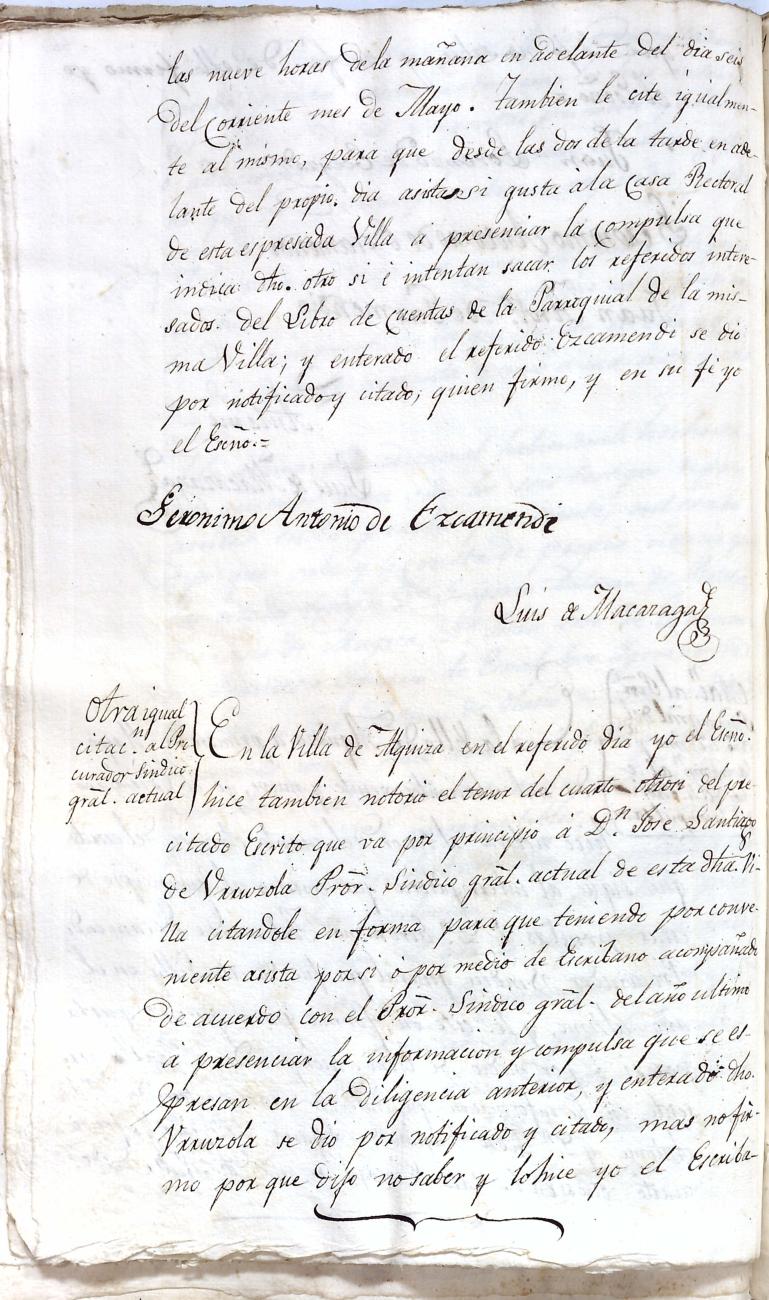 las nueve horas de la mañana en adelante del dia seis
del corriente mes de Mayo. Tambien le cite igualmen-
te al mismo, para que desde las dos de la tarde en ade-
lante del propio dia asista si gusta à la Casa Rectoral
de esta espresada Villa á presenciar la compulsa que
indica dho. otro si é intentan sacar los referidos intere-
sados del Libro de cuentas de la Parroquial de la mis-
ma Villa; y enterado el referido Ezcamendi se dio
por notificado y citado, quien firmo, y en su fe yo
el Esñô.=
Geronimo Antonio de Ezcamendi
Luis de Macaraga
Otra igual
citac.n al Pro
curador Sindico
gral. actual
En la Villa de Aguinza en el referido dia yo el Esñô.
hice tambien notorio el tenor del cuarto otrosi del pre-
citado Escrito que va por principio á D.n Jose Santiago
de Urruzola Prör. Sindico gräl. actual de esta dhâ. Vi-
lla citandole en forma para que teniendo por conve-
niente asista por si ó por medio de Escribano acompañado
de acuerdo con el Prör. Sindico gräl. del año ultimo
á presenciar la informacion y compulsa que se es-
presan en la diligencia anterior, y enterado dho.
Urruzola se dio por notificado y citado, mas no fir-
mo por que dijo no saber y lo hice yo el Escriba-